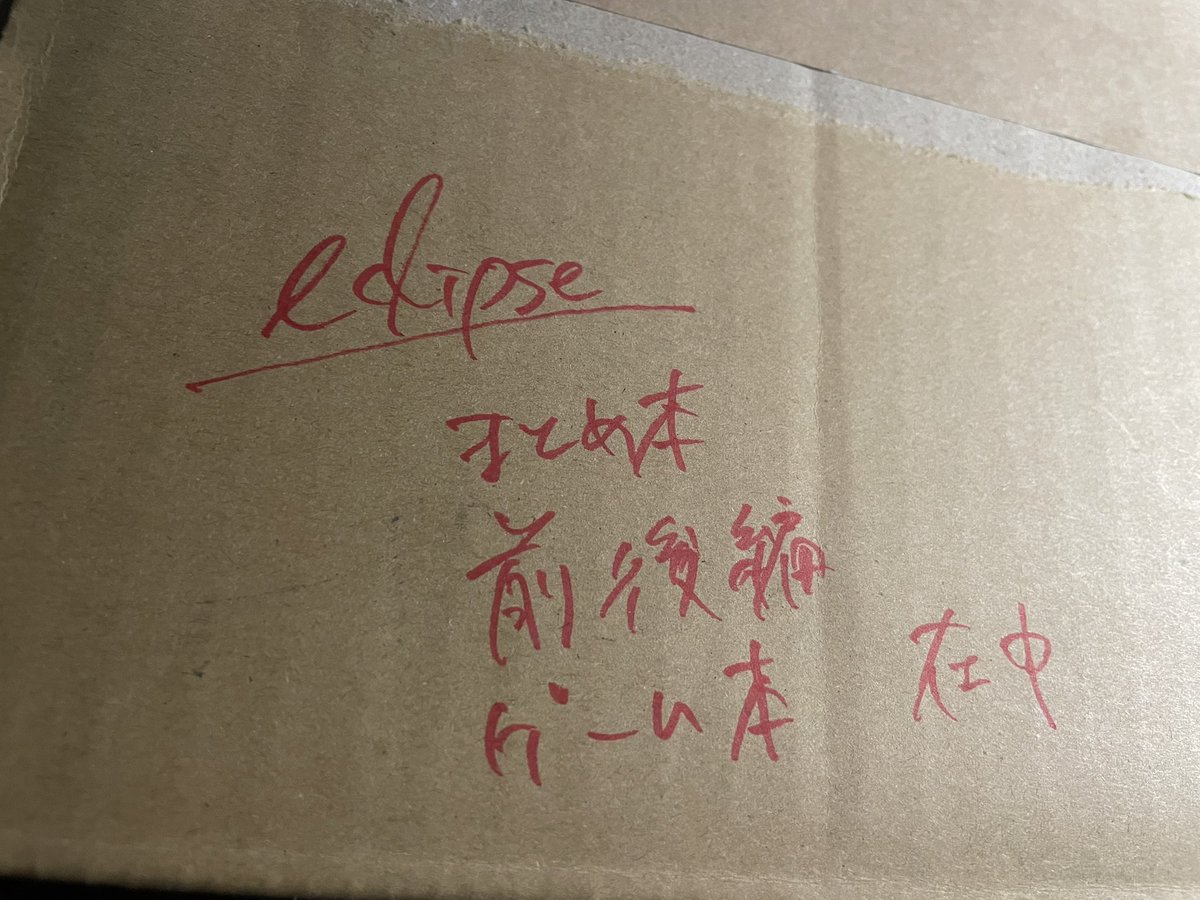 eclipse
まとめ本
前後編
ゲーム本 在中